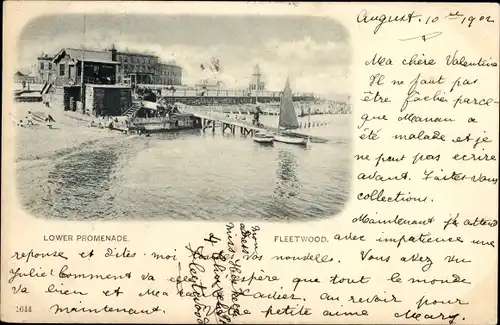 August, 10 1902
Ma chère Valentine
Il ne faut pas
être fachée parce
que Maman a
été malade et je
ne peut pas ecrire
avant. Faites vous
collection.
Maintenant j'attend
LOWER PROMENADE.
FLEETWOOD.
avec impatience une
reponse et Dites-moi vos nouvelles. Vous avez vu
Julie! Comment va espère que tout le monde
va bien et Ma aider. Au revoir pour
maintenant petite aime Mary.
mon
adress
miss
Fleetwood
1644